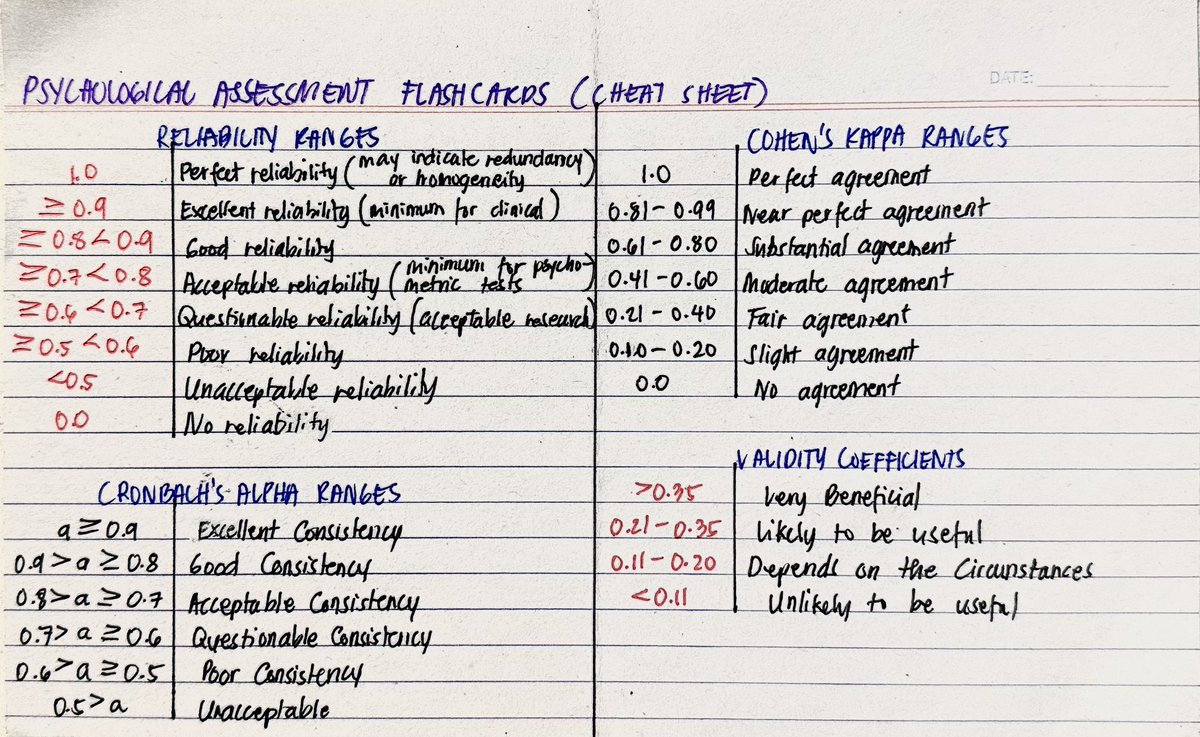 DATE:
PSYCHOLOGICAL ASSESSMENT FLASHCARDS (CHEAT SHEET)
RELIABILITY RANGES
1.0 Perfect reliability (may indicate redundancy or homogeneity)
≥ 0.9 Excellent reliability (minimum for clinical)
≥ 0.8 < 0.9 Good reliability
≥ 0.7 < 0.8 Acceptable reliability (minimum for psycho-metric tests
≥ 0.6 < 0.7 Questionable reliability (acceptable research)
≥ 0.5 < 0.6 Poor reliability
<0.5 Unacceptable reliability
0.0 No reliability
CRONBACH'S ALPHA RANGES
a ≥ 0.9 Excellent Consistency
0.9 > a ≥ 0.8 Good Consistency
0.8 > a ≥ 0.7 Acceptable Consistency
0.7 > a ≥ 0.6 Questionable Consistency
0.6 > a ≥ 0.5 Poor Consistency
0.5 > a Unacceptable
COHEN'S KAPPA RANGES
1.0 Perfect agreement
0.81 - 0.99 Near perfect agreement
0.61 - 0.80 Substantial agreement
0.41 - 0.60 Moderate agreement
0.21 - 0.40 Fair agreement
0.10 - 0.20 Slight agreement
0.0 No agreement
VALIDITY COEFFICIENTS
>0.35 Very Beneficial
0.21 - 0.35 Likely to be useful
0.11 - 0.20 Depends on the Circumstances
<0.11 Unlikely to be useful